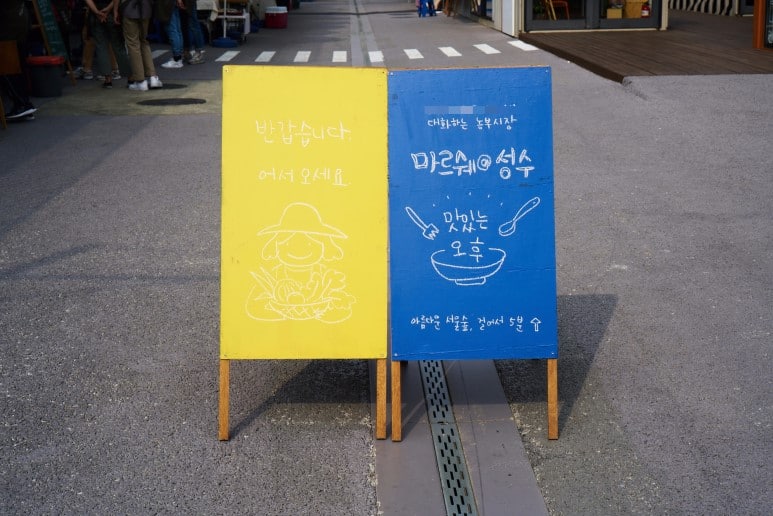 반갑습니다.
어서 오세요.
대화하는 농부시장
마르쉐@성수
맛있는
오후
아름다운 서울숲, 걸어서 5분